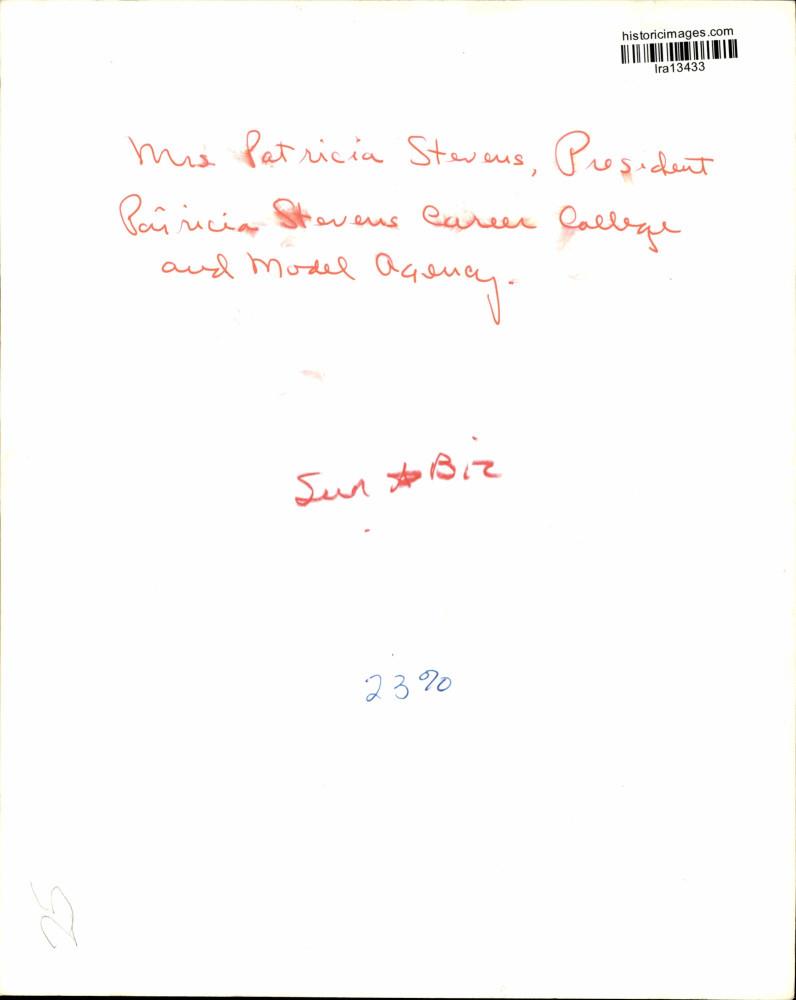 historicimages.com
lra13433
Mrs Patricia Stevens, President
Patricia Stevens Career College
and Model Agency.
Sun ☆ Biz
23%
25